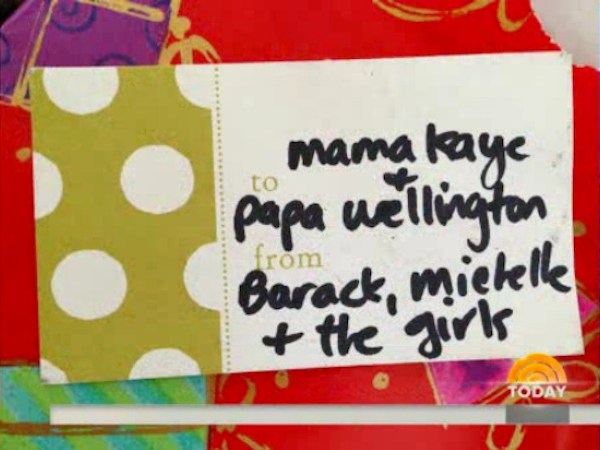 mama kaye
+
to
papa wellington
from
Barack, michelle
+ the girls
TODAY